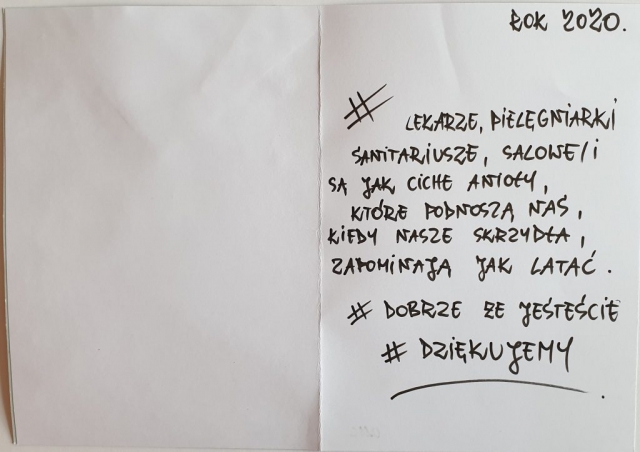 ROK 2020.
# LEKARZE, PIELĘGNIARKI
SANITARIUSZE, SALOWE/I
SĄ JAK CICHE ANIOŁY,
KTÓRE PODNOSZĄ NAS,
KIEDY NASZE SKRZYDŁA,
ZAPOMINAJĄ JAK LATAĆ.
# DOBRZE ŻE JESTEŚCIE
# DZIĘKUJEMY